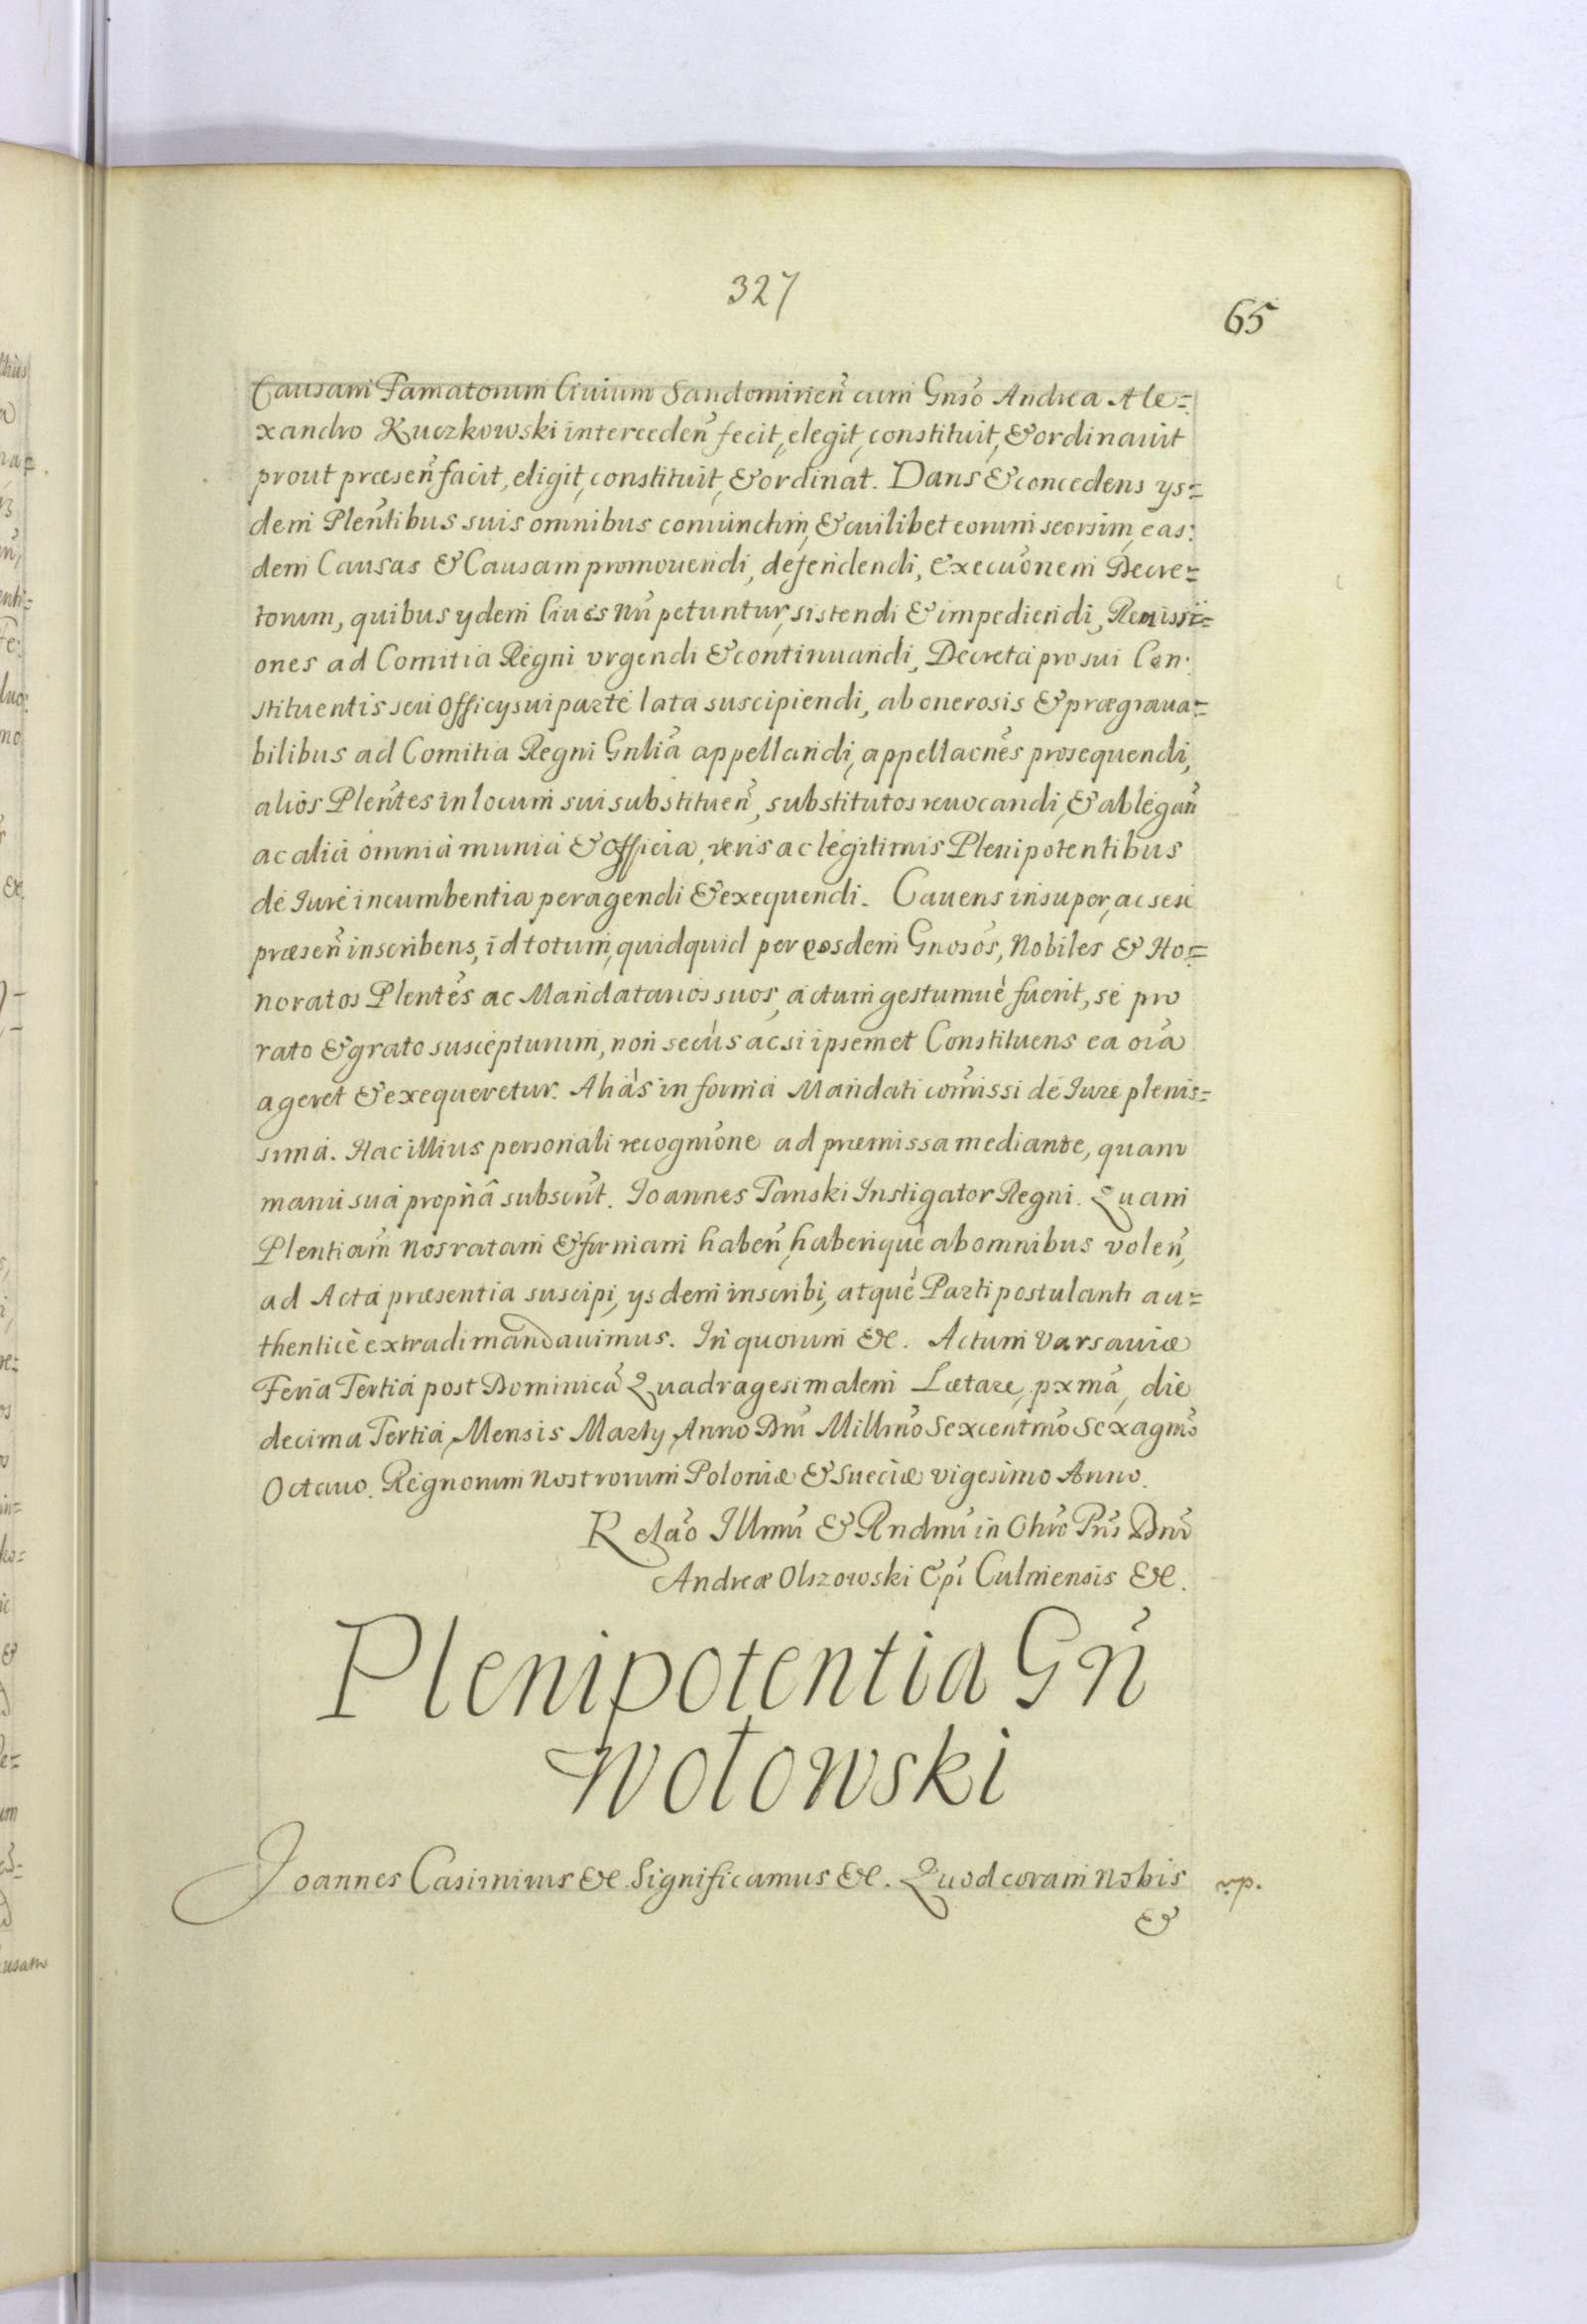 327
65
Causam Famatorum Ciuium Sandomirien̄ cum Gnso Andrea Ale=
xandro Ruczkowski interceden̄ fecit, elegit, constituit, & ordinauit
prout præsen̄ facit, eligit, constituit, & ordinat. Dans & concedens ys=
dem Plen̄tibus suis omnibus coniunctim, & cuilibet eorum seorsim, eas:
dem Causas & Causam promouendi, defendendi, Execuōnem Decre=
torum, quibus ydem Ciues nu͂ petuntur, sistendi & impediendi, Remissi=
ones ad Comitia Regni vrgendi & continuandi, Decreta pro sui Con:
stituentis seu Officy sui parte lata suscipiendi, ab onerosis & prægraua=
bilibus ad Comitia Regni Gnlia͂ appellandi, appellacn̄es prosequendi,
alios Plen̄tes in locum sui substituen̄, substitutos reuocandi, & ablegan̄
ac alia omnia munia & Officia, veris ac legitimis Plenipotentibus
de Iure incumbentia peragendi & exequendi. Cauens insuper, ac sese
præsen̄ inscribens, id totum, quidquid per eosdem Gnosos, Nobiles & Ho=
noratos Plentēs ac Mandatarios suos, actum gestumuè fuerit, se pro
rato & grato suscepturum, non secùs ac si ipsemet Constituens ea oīa
ageret & exequeretur. Aliàs in forma Mandati com̄issi de Iure plenis=
sima. Hac illius personali recogniōne ad præmissa mediante, quam
manu suâ propriâ subscrit. Ioannes Tanski Instigator Regni. Quam
Plentiam̄ nos ratam & firmam haben̄, haberiquè ab omnibus volen̄,
ad Acta præsentia suscipi, ysdem inscribi, atquè Parti postulanti au=
thenticè extradi mandauimus. In quorum &c. Actum Varsauiæ
Feria Tertia post Dominica͂ Quadragesimalem Lætare, pxma͂, die
decima Tertia, Mensis Marty, Anno Dnī Millmō Sexcentmō Sexagmō
Octauo. Regnorum nostrorum Poloniæ & Sueciæ vigesimo Anno.
Relaō Illmī & Rndmī in Chrō Pris Dnī
Andreæ Olszowski Epī Culmensis &c.
Plenipotentia Gn̄
Wołowski
Joannes Casimirus &c. Significamus &c. Quod coram nobis
rp.
&